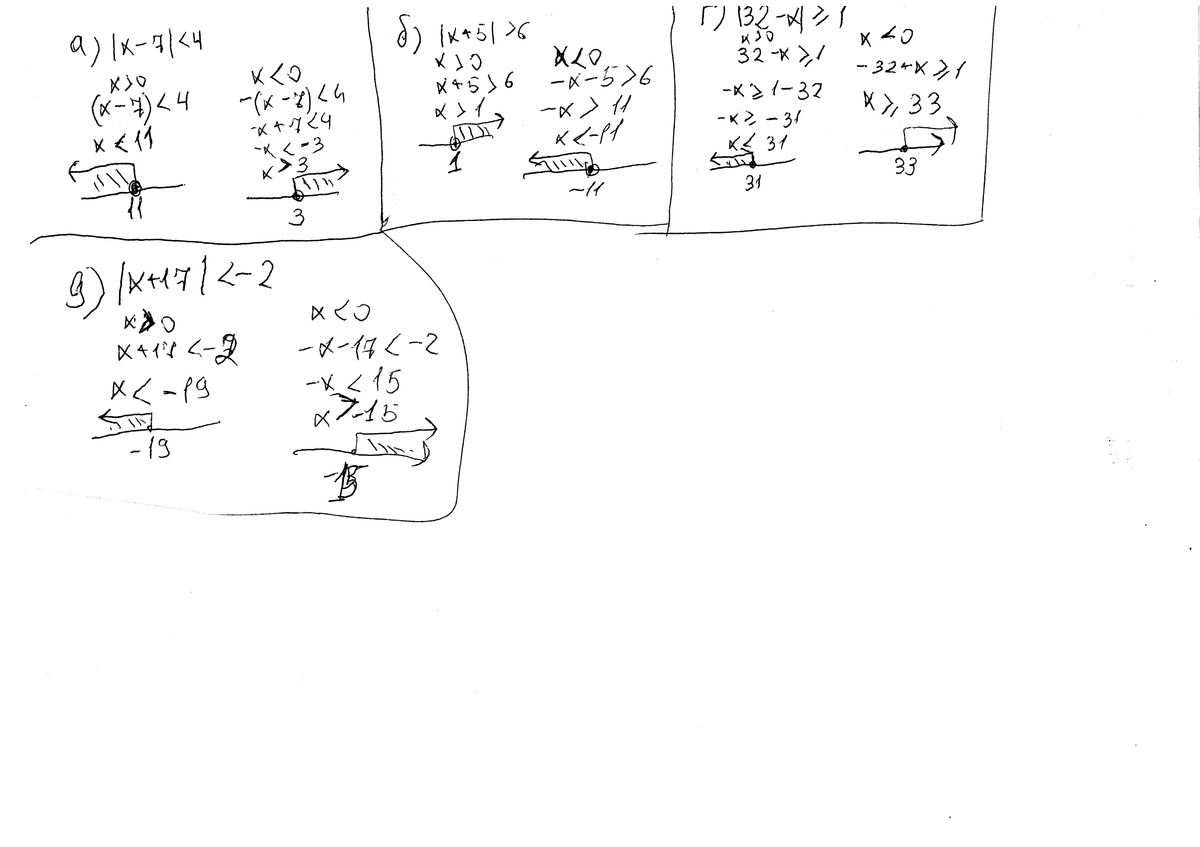 а) |x-7|<4
x>0
(x-7)<4
x<11
11
x<0
-(x-7)<4
-x+7<4
-x<-3
x>3
3
б) |x+5|>6
x>0
x+5>6
x>1
1
x<0
-x-5>6
-x>11
x<-11
-11
г) |32-x|⩾1
x>0
32-x⩾1
-x⩾1-32
-x⩾-31
x⩽31
31
x<0
-32+x⩾1
x⩾33
33
д) |x+17|<-2
x>0
x+17<-2
x<-19
-19
x<0
-x-17<-2
-x<15
x>-15
-15